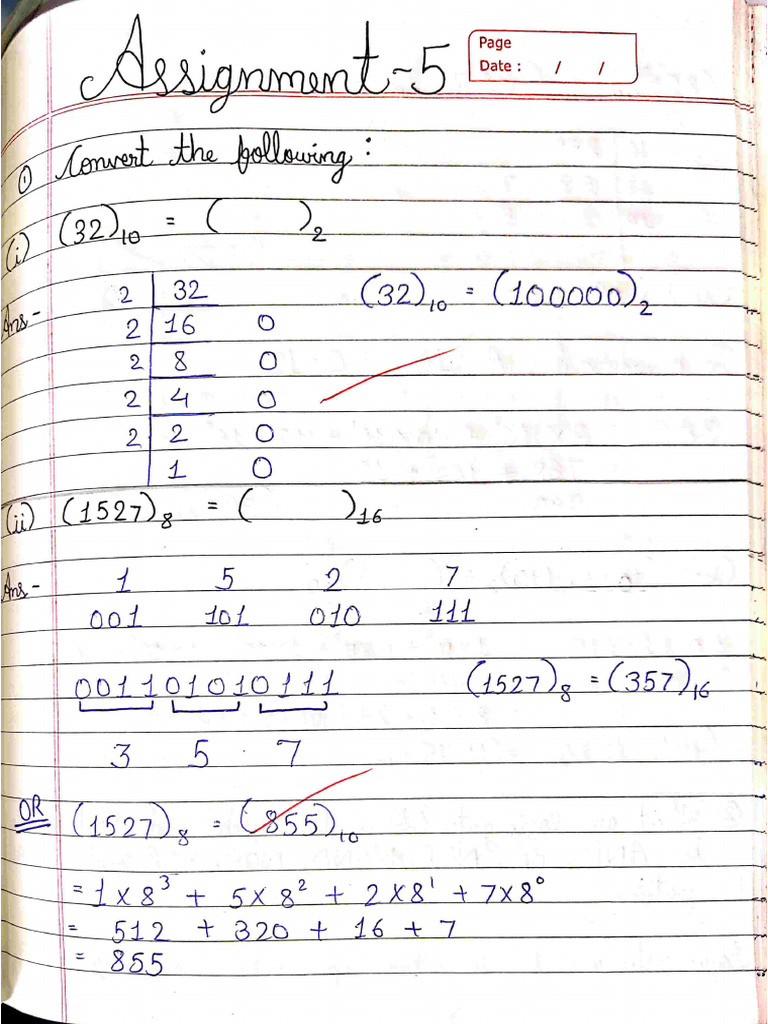 Assignment-5
Page
Date : / /
① Convert the following :
(i) (32)₁₀ = ( )₂
Ans- 2 32 (32)₁₀ = (100000)₂
2 16 0
2 8 0
2 4 0
2 2 0
1 0
(ii) (1527)₈ = ( )₁₆
Ans- 1 5 2 7
001 101 010 111
001101010111 (1527)₈ = (357)₁₆
3 5 7
OR (1527)₈ = (855)₁₀
= 1 x 8³ + 5 x 8² + 2 x 8¹ + 7 x 8⁰
= 512 + 320 + 16 + 7
= 855